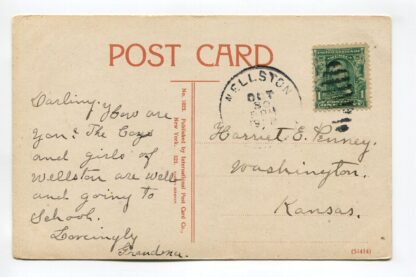 POST CARD
WELLSTON
OCT
30
No. 1023. Published by International Post Card Co.,
New York.
Darling: How are
You? The Boys
and girls of
Wellston are well
and going to
School.
Lovingly
Grandma.
Harriet. E. Penney.
Washington.
Kansas.
(51414)